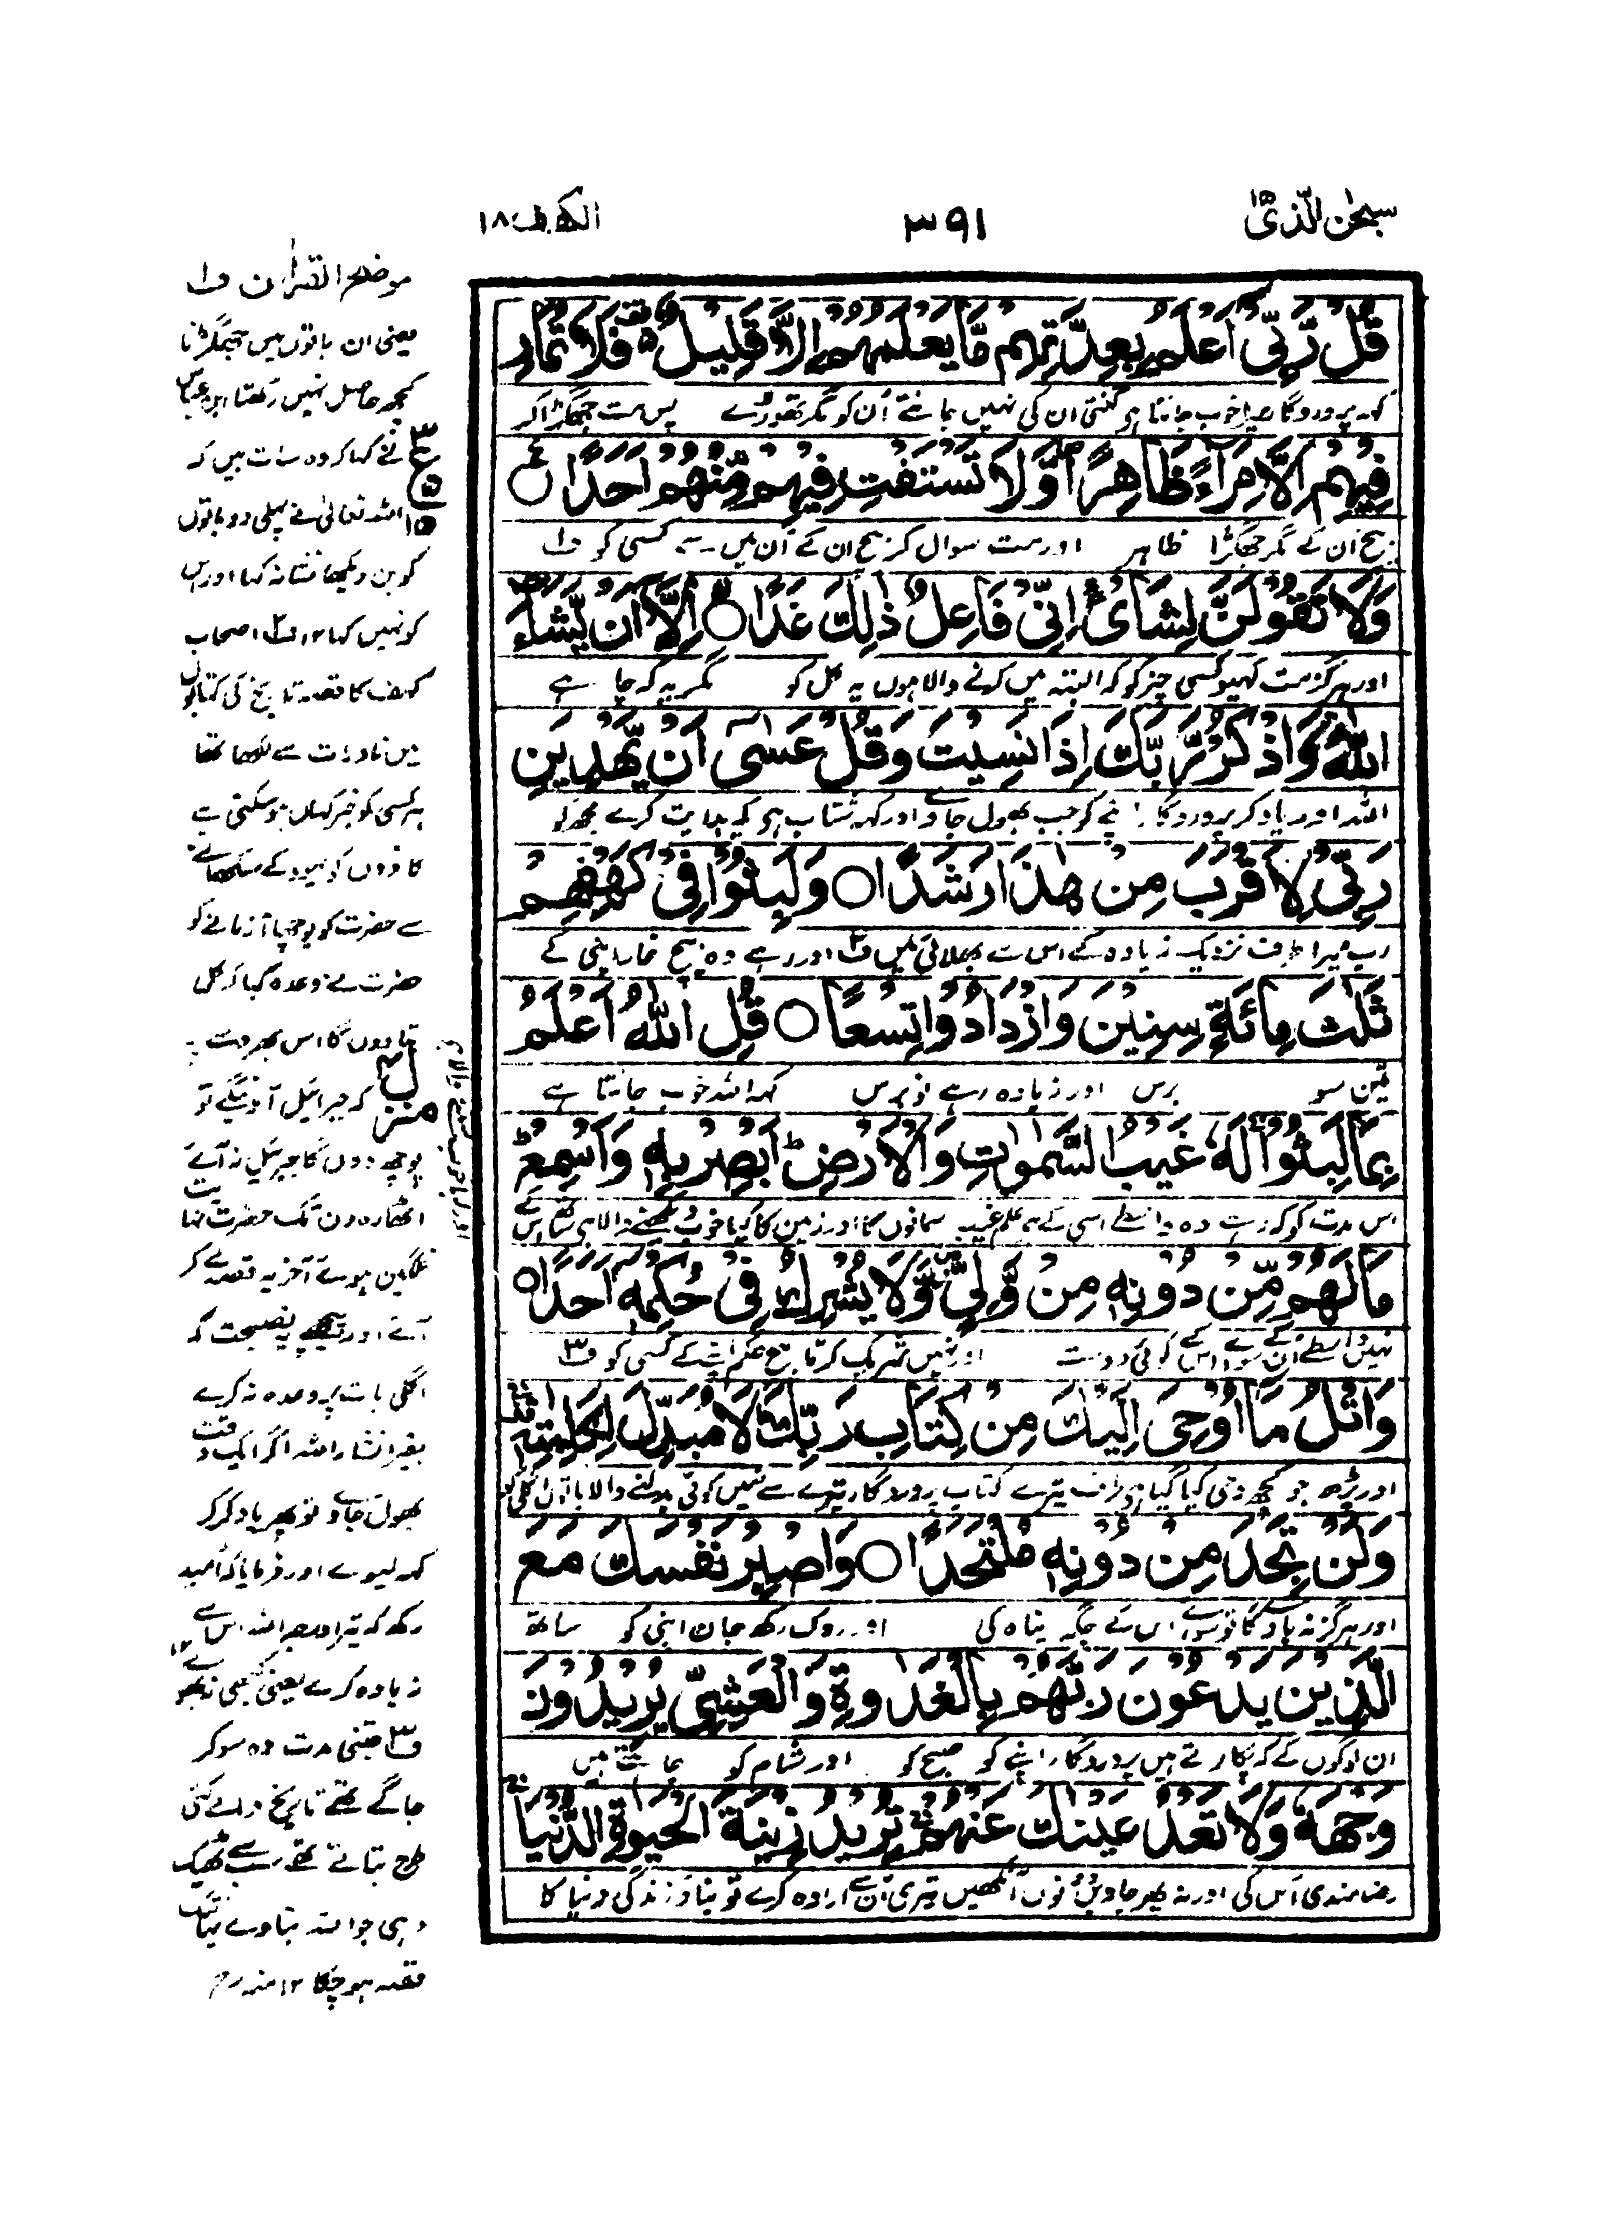 سبحٰن الّذیۤ ۱۵
۳۹۱
الکہف ۱۸
قُلْ رَّبِّیْۤ اَعْلَمُ بِعِدَّتِهِمْ مَّا یَعْلَمُهُمْ اِلَّا قَلِیْلٌ ۫ فَلَا تُمَارِ
کہہ پروردگار میرا خوب جانتا ہے گنتی ان کی نہیں جانتے اُن کو مگر تھوڑے پس مت جھگڑا کر
فِیْهِمْ اِلَّا مِرَآءً ظَاهِرًا ۪ وَّلَا تَسْتَفْتِ فِیْهِمْ مِّنْهُمْ اَحَدًا ○
بیچ ان کے مگر جھگڑا ظاہر اور مت سوال کر بیچ ان کے اُن میں سے کسی کو ف۱
وَلَا تَقُوْلَنَّ لِشَایْءٍ اِنِّیْ فَاعِلٌ ذٰلِكَ غَدًا ○ اِلَّاۤ اَنْ یَّشَآءَ
اور ہرگز مت کہیو کسی چیز کو کہ البتہ میں کرنے والا ہوں یہ کل کو مگر یہ کہ چاہے
اللّٰهُ ۫ وَاذْكُرْ رَّبَّكَ اِذَا نَسِیْتَ وَقُلْ عَسٰۤی اَنْ یَّهْدِیَنِ
اللہ اور یاد کر پروردگار اپنے کو جب بھول جاوے اور کہہ شتاب ہے کہ ہدایت کرے مجھ کو
رَبِّیْ لِاَقْرَبَ مِنْ هٰذَا رَشَدًا ○ وَلَبِثُوْا فِیْ كَهْفِهِمْ
رب میرا طرف نزدیک زیادہ کے اس سے بھلائی میں ف۲ اور رہے وہ بیچ غار اپنی کے
ثَلٰثَ مِائَةٍ سِنِیْنَ وَازْدَادُوْا تِسْعًا ○ قُلِ اللّٰهُ اَعْلَمُ
تین سو برس اور زیادہ رہے نو برس کہہ اللہ خوب جانتا ہے
بِمَا لَبِثُوْا ۚ لَهٗ غَیْبُ السَّمٰوٰتِ وَالْاَرْضِ ؕ اَبْصِرْ بِهٖ وَاَسْمِعْ ؕ
اس مدت کو کہ رہے وہ واسطے اسی کے ہے علم غیب سمانوں کا اور زمین کا کیا خوب دیکھنے والا ہے ساتھ اس کے
اور کیا خوب سننے والا ہے
مَا لَهُمْ مِّنْ دُوْنِهٖ مِنْ وَّلِیٍّ ۫ وَّلَا یُشْرِكُ فِیْ حُكْمِهٖۤ اَحَدًا ○
نہیں واسطے اُن کے سوائے اس کے کوئی دوست اور نہیں شریک کرتا بیچ حکم اپنے کے کسی کو ف۳
وَاتْلُ مَاۤ اُوْحِیَ اِلَیْكَ مِنْ كِتَابِ رَبِّكَ ۚ لَا مُبَدِّلَ لِكَلِمٰتِهٖ ۫
اور پڑھ جو کچھ وحی کیا گیا ہے طرف تیرے کتاب پروردگار تیرے سے نہیں کوئی بدلنے والا باتوں اس کی کو
وَلَنْ تَجِدَ مِنْ دُوْنِهٖ مُلْتَحَدًا ○ وَاصْبِرْ نَفْسَكَ مَعَ
اور ہرگز نہ پاوے گا تو سوائے اس کے جگہ پناہ کی اور روک رکھ جان اپنی کو ساتھ
الَّذِیْنَ یَدْعُوْنَ رَبَّهُمْ بِالْغَدٰوةِ وَالْعَشِیِّ یُرِیْدُوْنَ
ان لوگوں کے کہ پکارتے ہیں پروردگار اپنے کو صبح کو اور شام کو چاہتے ہیں
وَجْهَهٗ وَلَا تَعْدُ عَیْنٰكَ عَنْهُمْ ۚ تُرِیْدُ زِیْنَةَ الْحَیٰوةِ الدُّنْیَا ۚ
رضامندی اُس کی اور نہ پھر جاویں دونوں آنکھیں تیری اُن سے ارادہ کرے تو بناؤ زندگی دنیا کا
موضح القرآن ف۱
یعنی ان باتوں میں جھگڑنا
کچھ حاصل نہیں رکھتا ابن عباس
نے کہا کہ وہ سات ہیں کہ
اللہ تعالیٰ نے پہلی دو باتوں
کو بن دیکھا نشانہ کہا اور اس
کو نہیں کہا ۱۲ ف۲ اصحاب
کہف کا قصہ تاریخ کی کتابوں
میں نادرات سے لکھا تھا
ہر کسی کو خبر کہاں ہو سکتی ہے
کافروں کو یہود کے سکھانے
سے حضرت کو پوچھا آزمانے کو
حضرت نے وعدہ کیا کہ کل
بتا دوں گا اس بھروسے پہ
کہ جبرائیل آویں گے تو
پوچھ دوں گا جبرئیل نہ آئے
اٹھارہ دن تک حضرت نہایت
غمگین ہوئے آخر یہ قصہ لے کر
آئے اور پیچھے یہ نصیحت کہ
اگلی بات پر وعدہ نہ کرے
بغیر انشاء اللہ اگر ایک وقت
بھول جاوے تو پھر یاد کر کر
کہہ لیوے اور فرمایا کہ اُمید
رکھ کہ تیرا درجہ اللہ اس سے
زیادہ کرے یعنی کبھی نہ بھولے ۱۲
ف۳ جتنی مدت وہ سو کر
جاگے تھے تاریخ والے کئی
طرح بتاتے تھے سب سے ٹھیک
وہی جو اللہ بتاوے یہاں تک
قصہ ہو چکا ۱۲ منہ رح
ع
منزل ۴